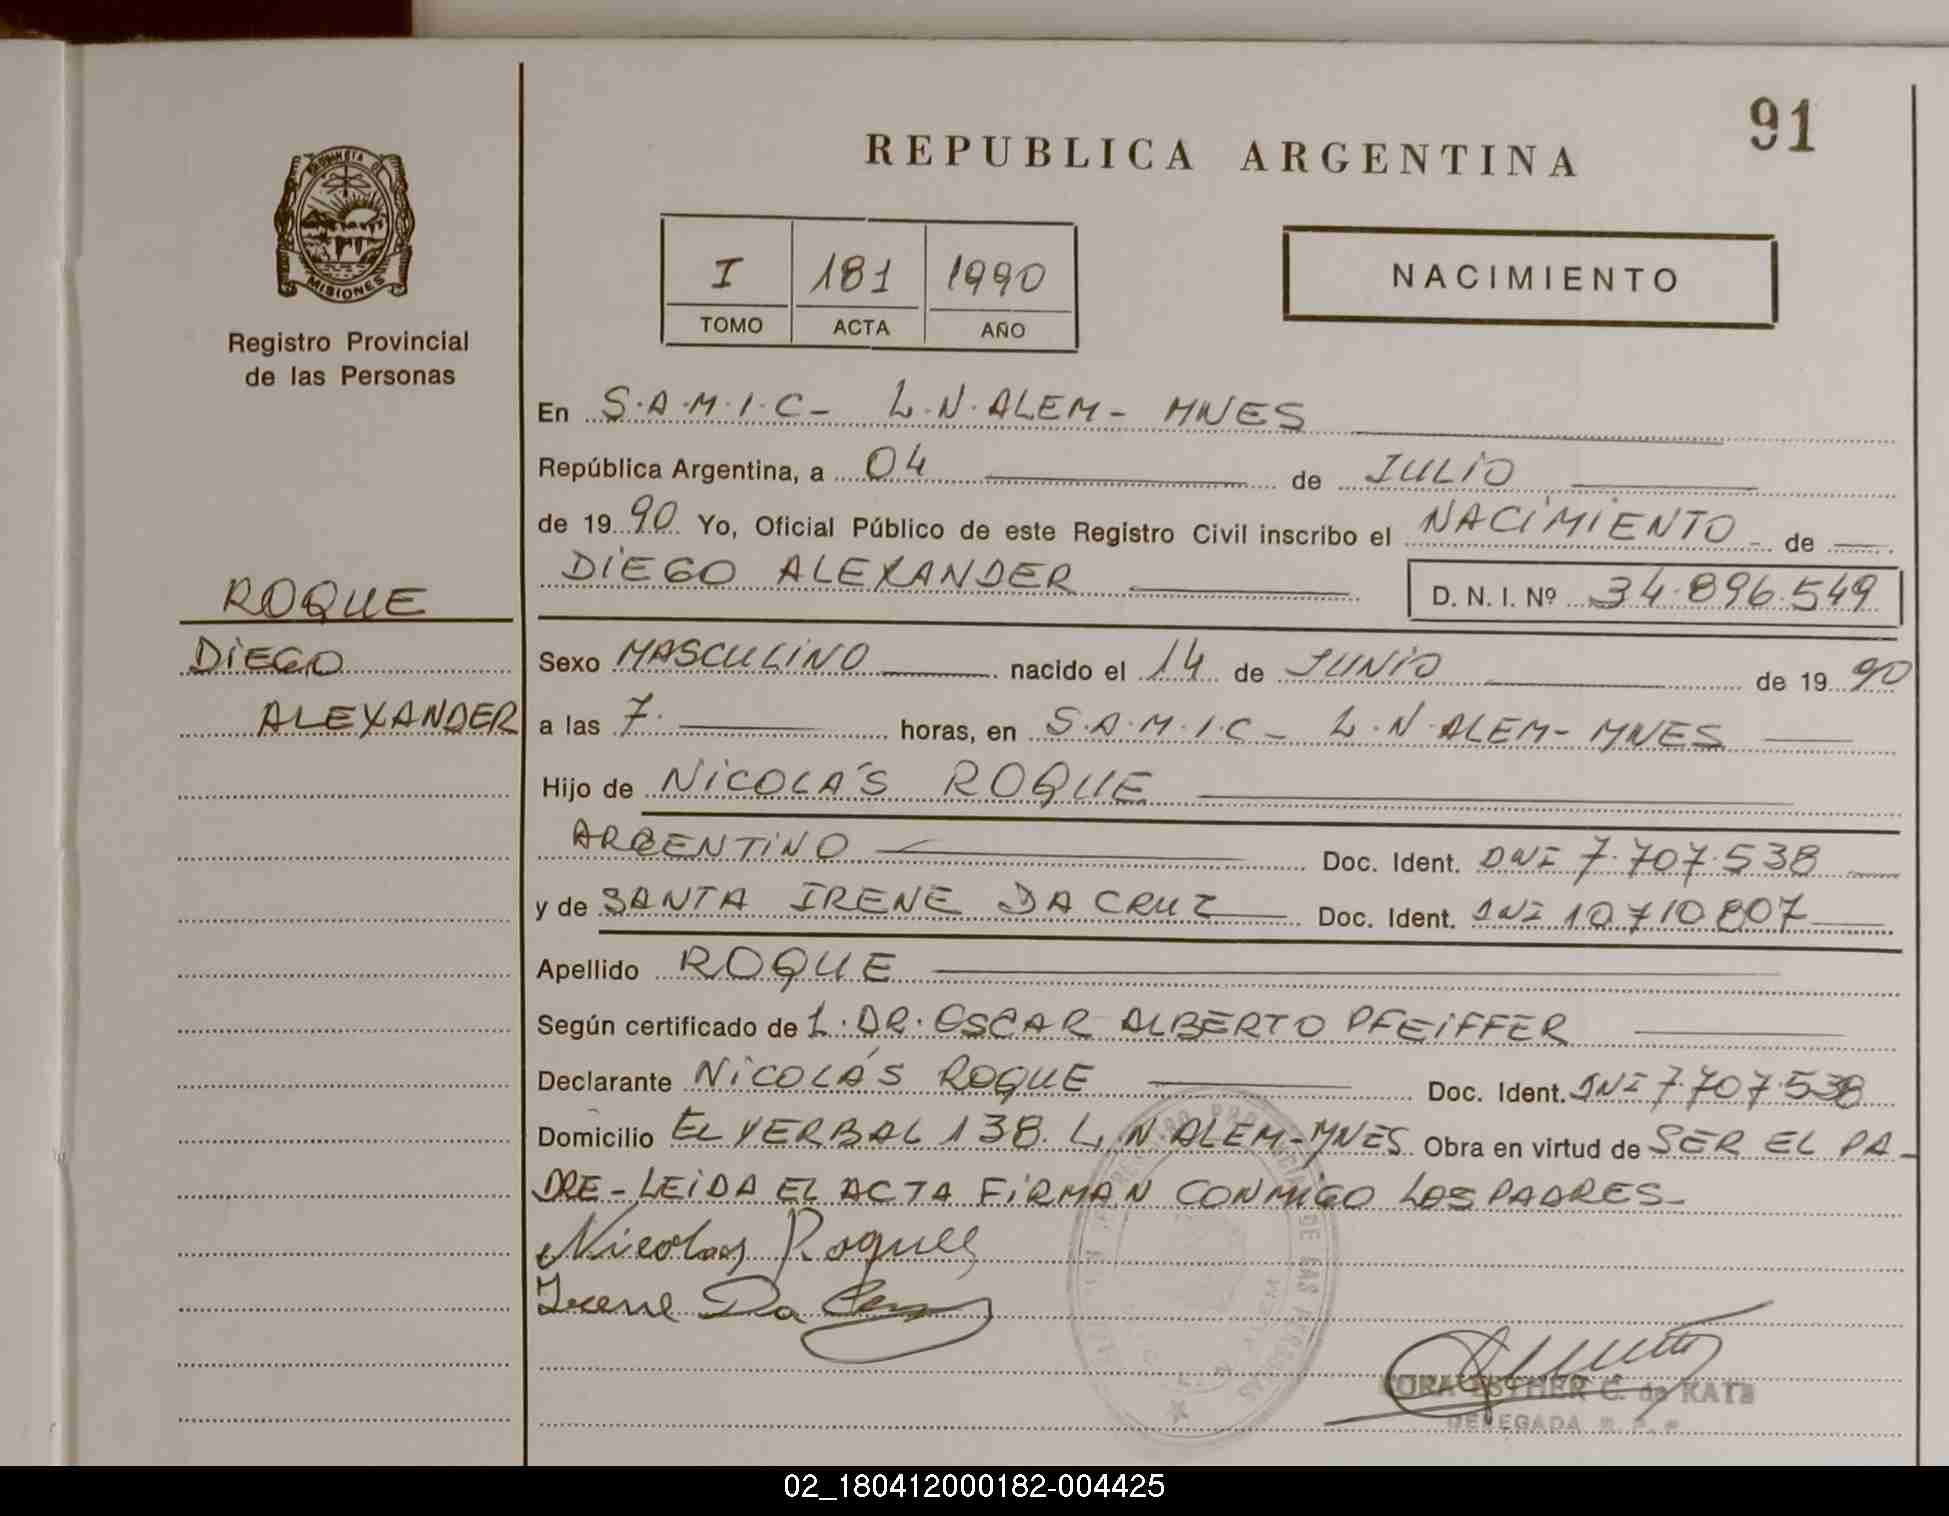 91
REPUBLICA ARGENTINA
PROVINCIA DE
MISIONES
Registro Provincial
de las Personas
I 181 1990
TOMO ACTA AÑO
NACIMIENTO
En S.A.M.I.C- L.N.ALEM- MNES
República Argentina, a 04 de JULIO
de 1990 Yo, Oficial Público de este Registro Civil inscribo el NACIMIENTO - de
DIEGO ALEXANDER D. N. I. Nº 34.896.549
ROQUE
DIEGO
ALEXANDER
Sexo MASCULINO nacido el 14 de JUNIO de 1990
a las 7. horas, en S.A.M.I.C- L.N.ALEM- MNES
Hijo de NICOLÁS ROQUE
ARGENTINO Doc. Ident. DNI 7.707.538
y de SANTA IRENE DA CRUZ Doc. Ident. DNI 10710807
Apellido ROQUE
Según certificado de L.DR. OSCAR ALBERTO PFEIFFER
Declarante NICOLÁS ROQUE Doc. Ident. DNI 7.707.538
Domicilio EL YERBAL 138. L.N ALEM-MNES Obra en virtud de SER EL PA-
DRE-LEIDA EL ACTA FIRMAN CONMIGO LOS PADRES-
Nicolas Roque
Irene Da
ESTHER C. de KATZ
DELEGADA
02_180412000182-004425